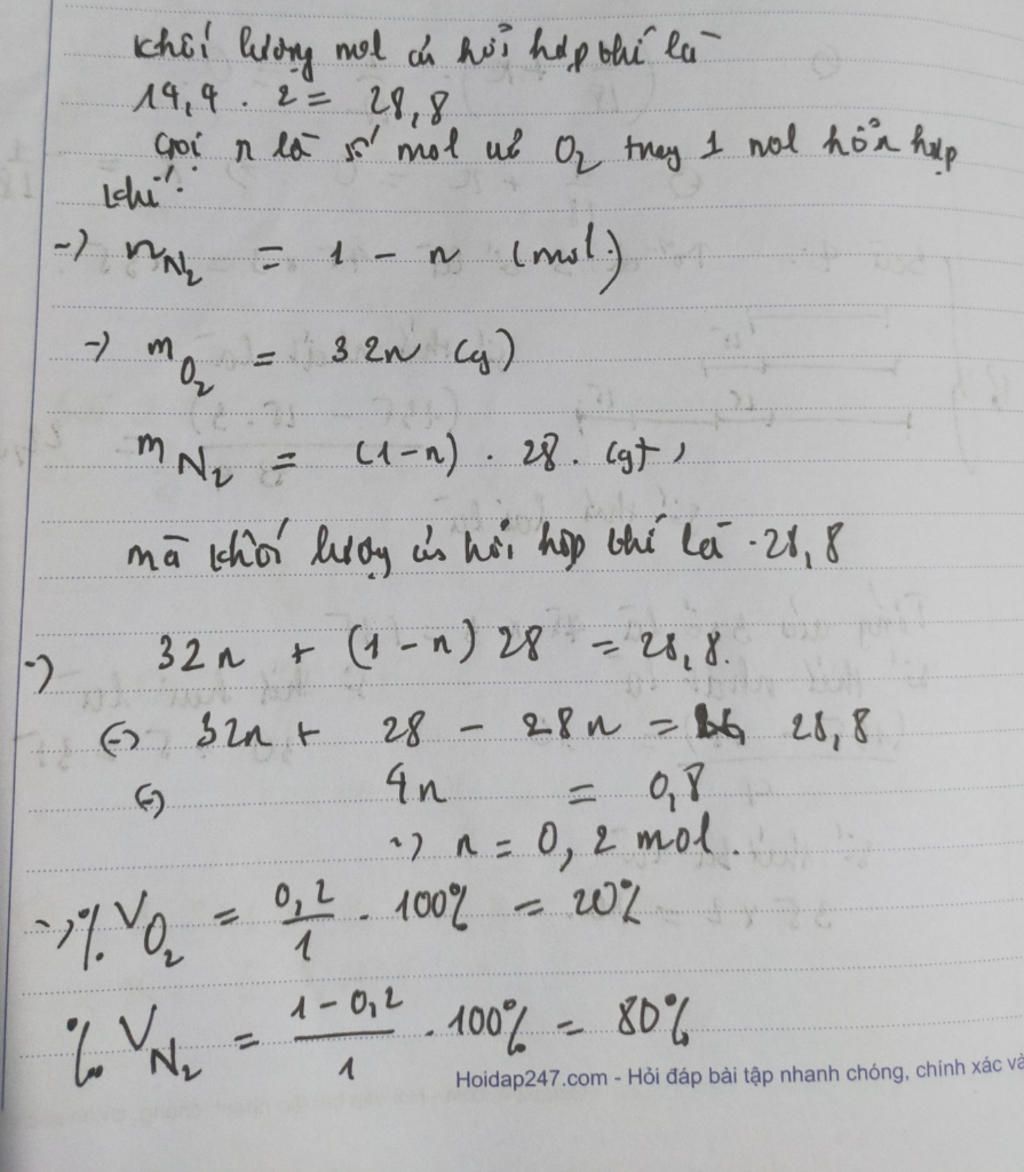 khối lượng mol của hỗn hợp khí là
14,4 . 2 = 28,8
Gọi n là số mol của O₂ trong 1 mol hỗn hợp
khí :
-> n N₂ = 1 - n (mol)
-> m O₂ = 32n (g)
m N₂ = (1-n) . 28 . (g)
mà khối lượng của hỗn hợp khí là 28,8
-> 32n + (1-n) 28 = 28,8.
(=) 32n + 28 - 28n = 28,8
(=) 4n = 0,8
-> n = 0,2 mol.
-> % V O₂ = 0,2/1 . 100% = 20%
% V N₂ = 1-0,2/1 . 100% = 80%
Hoidap247.com - Hỏi đáp bài tập nhanh chóng, chính xác và